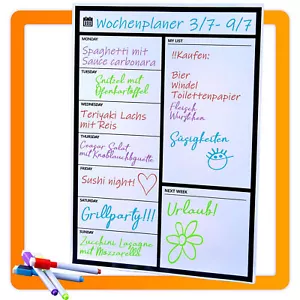 Wochenplaner 3/7- 9/7
MONDAY
Spaghetti mit
Sauce carbonara
TUESDAY
Snitzel mit
Ofenkartoffel
WEDNESDAY
Teriyaki Lachs
mit Reis
THURSDAY
Caesar Salat
mit Knoblauchbaguette
FRIDAY
Sushi night!
SATURDAY
Grillparty!!!
SUNDAY
Zucchini Lasagne
mit Mozzarella
MY LIST
!!Kaufen:
Bier
Windel
Toilettenpapier
Fleisch
Würstchen
Süsigheiten
NEXT WEEK
Urlaub!